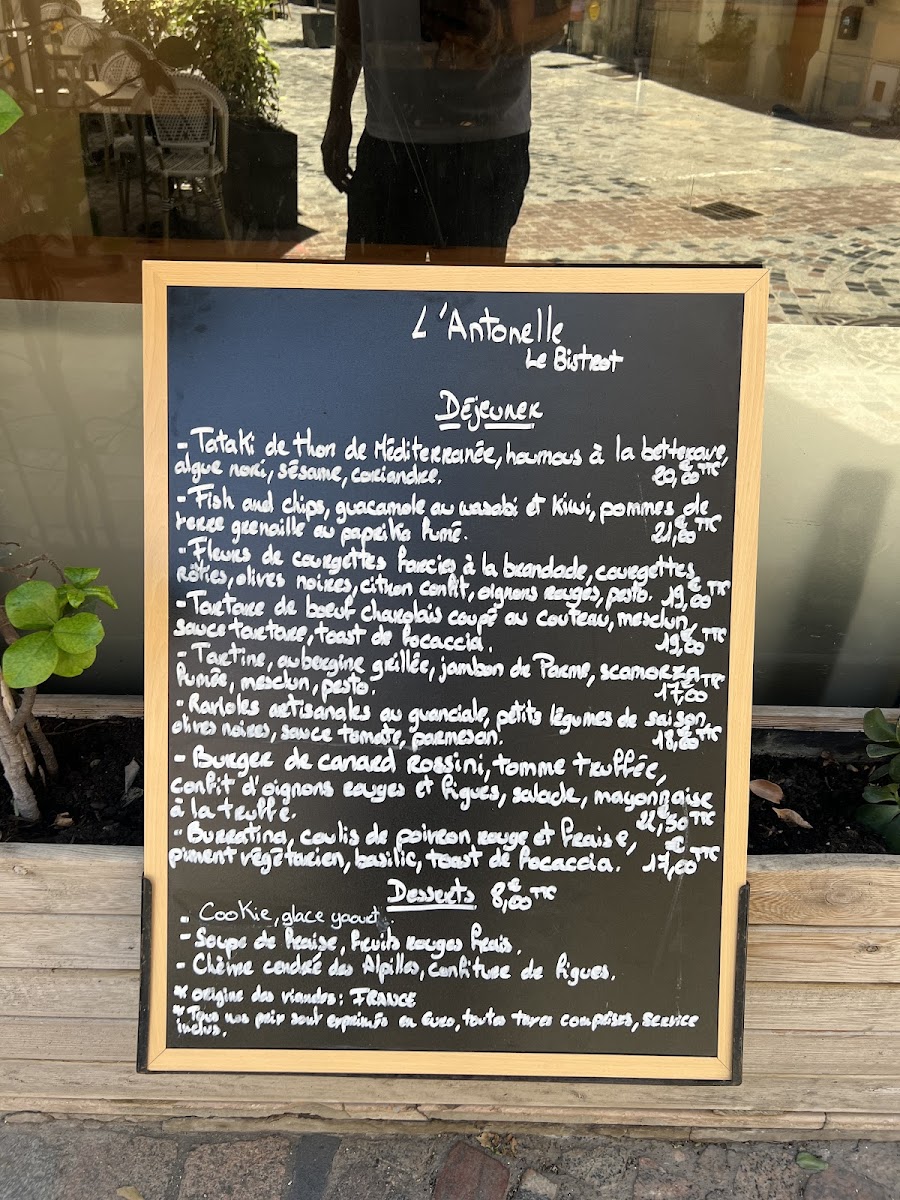 L'Antonelle
Le Bistrot
Déjeuner
- Tataki de thon de Méditerranée, houmous à la betterave,
algue nori, sésame, coriandre. 20,00€ TTC
- Fish and chips, guacamole au wasabi et kiwi, pommes de
terre grenaille au paprika fumé. 21,00€ TTC
- Fleurs de courgettes farcies à la brandade, courgettes
rôties, olives noires, citron confit, oignons rouges, pesto. 19,00€ TTC
- Tartare de boeuf charolais coupé au couteau, mesclun,
sauce tartare, toast de focaccia. 19,00€ TTC
- Tartine, aubergine grillée, jambon de Parme, scamorza
fumée, mesclun, pesto. 17,00€ TTC
- Ravioles artisanales au guanciale, petits légumes de saison,
olives noires, sauce tomate, parmesan. 18,00€ TTC
- Burger de canard Rossini, tomme truffée,
confit d'oignons rouges et figues, salade, mayonnaise
à la truffe. 22,50€ TTC
- Burratina, coulis de poivron rouge et fraise,
piment végétarien, basilic, toast de focaccia. 17,00€ TTC
Desserts 8,00€ TTC
- Cookie, glace yaourt.
- Soupe de fraise, fruits rouges frais.
- Chèvre cendré des Alpilles, confiture de figues.
* origine des viandes: FRANCE
* Tous nos prix sont exprimés en Euro, toutes taxes comprises, service
inclus.